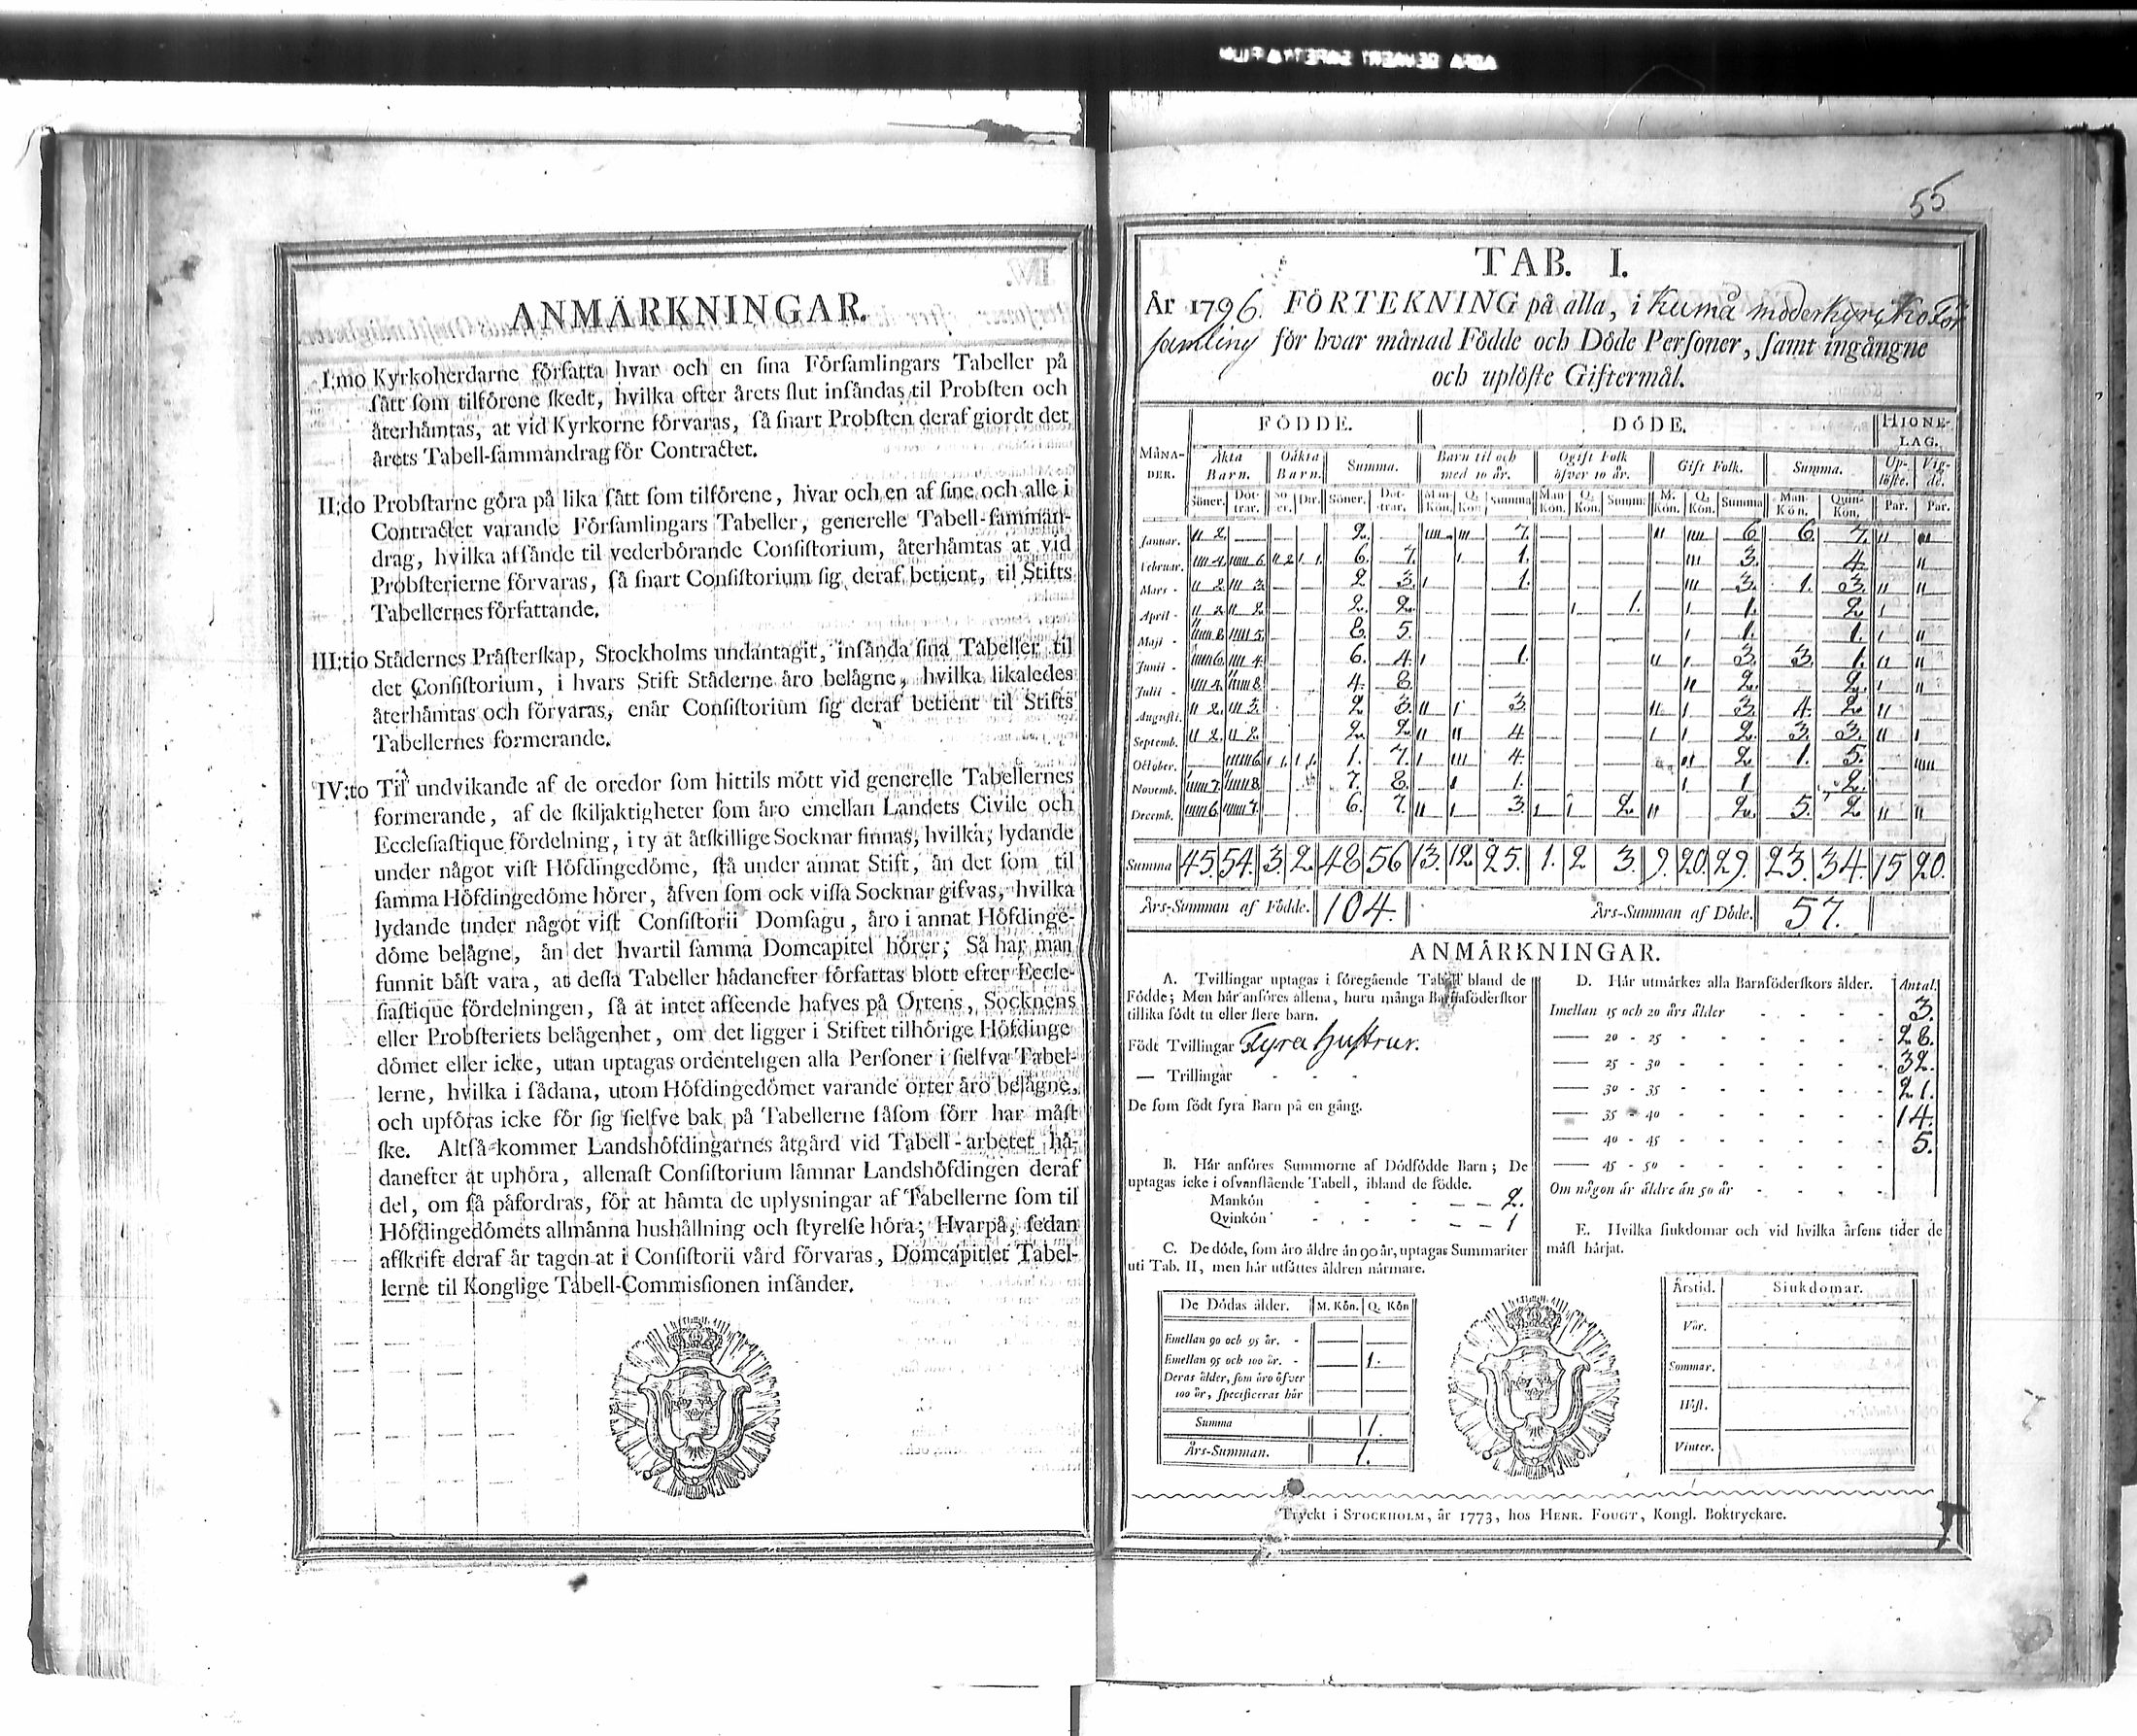 ANMÄRKNINGAR.
I:mo Kyrkoherdarne författa hvar och en sina Församlingars Tabeller på
sätt som tilförene skedt, hvilka efter årets slut insändas til Probsten och
återhämtas, at vid Kyrkorne förvaras, så snart Probsten deraf giordt det
årets Tabell-sammandrag för Contractet.
II:do Probstarne göra på lika sätt som tilförene, hvar och en af sine och alle i
Contractet varande Församlingars Tabeller, generelle Tabell-samman-
drag, hvilka afsände til vederbörande Consistorium, återhämtas at vid
Probsterierne förvaras, så snart Consistorium sig deraf betient, til Stifts
Tabellernes författande.
III:tio Städernes Prästerskap, Stockholms undantagit, insända sina Tabeller til
det Consistorium, i hvars Stift Städerne äro belägne, hvilka likaledes
återhämtas och förvaras, enär Consistorium sig deraf betient til Stifts
Tabellernes formerande.
IV:to Til undvikande af de oredor som hittils mött vid generelle Tabellernes
formerande, af de skiljaktigheter som äro emellan Landets Civile och
Ecclesiastique fördelning, i ty at åtskillige Socknar finnas, hvilka, lydande
under något vist Höfdingedöme, stå under annat Stift, än det som til
samma Höfdingedöme hörer, äfven som ock vissa Socknar gifvas, hvilka
lydande under något vist Consistorii Domsagu, äro i annat Höfdinge-
döme belägne, än det hvartil samma Domcapitel hörer; Så har man
funnit bäst vara, at dessa Tabeller hädanefter författas blott efter Eccle-
siastique fördelningen, så at intet afseende hafves på Ortens, Socknens
eller Probsteriets belägenhet, om det ligger i Stiftet tilhörige Höfdinge
dömet eller icke, utan uptagas ordenteligen alla Personer i sielfva Tabel-
lerne, hvilka i sådana, utom Höfdingedömet varande orter äro belägne,
och upföras icke för sig sielfve bak på Tabellerne såsom förr har måst
ske. Altså kommer Landshöfdingarnes åtgärd vid Tabell-arbetet hä-
danefter at uphöra, allenast Consistorium lämnar Landshöfdingen deraf
del, om så påfordras, för at hämta de uplysningar af Tabellerne som til
Höfdingedömets allmänna hushållning och styrelse höra; Hvarpå, sedan
afskrift deraf är tagen at i Consistorii vård förvaras, Domcapitlet Tabel-
lerne til Konglige Tabell-Commissionen insänder.
55
TAB. I.
År 1796. FÖRTEKNING på alla, i Kumå moderkyrko för
samling för hvar månad Födde och Döde Personer, samt ingångne
och uplöste Giftermål.
FÖDDE. DÖDE. HIONE-
LAG.
MÅNA-
DER. Äkta
Barn. Oäkta
Barn. Summa. Barn til och
med 10 år. Ogift Folk
öfver 10 år. Gift Folk. Summa. Up-
löste. Vig-
de.
Söner. Döt-
trar. Sö
er. Dtr. Söner. Döt-
trar. Man
Kön. Q.
Kön Summa Man
Kön. Q.
Kön. Summ: M.
Kön. Q.
Kön. Summa Man-
Kön. Quin-
Kön. Par. Par.
Januar. 2. 2. 7. 6 6. 7.
Februar. 4. 6. 2 1. 6. 7. 1. 3. 4.
Mars - 2 3. 2 3. 1. 3. 1. 3.
April - 2 2. 2. 2. 1. 1. 2.
Maji - 8 5. 8 5. 1. 1.
Junii - 6. 4. 6. 4. 1. 3. 3. 1.
Julii - 4 8. 4. 8 2. 2.
Augusti. 2. 3. 2 3. 3 3. 4. 2
Septemb. 2. 2. 2. 2. 4 2. 3. 3.
October. 6 1. 1. 1. 7. 4. 2 1. 5.
Novemb. 7. 8. 7. 8. 1. 1 2.
Decemb. 6. 7. 6. 7. 3. 2. 2. 5. 2
Summa 45. 54. 3. 2. 48 56 13. 12. 25. 1. 2 3. 9. 20. 29. 23. 34. 15 20.
Års-Summan af Födde. 104. Års-Summan af Döde. 57.
ANMÄRKNINGAR.
A. Tvillingar uptagas i föregående Tabell bland de
Födde; Men här anföres allena, huru många Barnaföderskor
tillika födt tu eller flere barn.
Födt Tvillingar Fyra Hustrur.
— Trillingar - - -
De som födt fyra Barn på en gång.
B. Här anföres Summorne af Dödfödde Barn; De
uptagas icke i ofvanstående Tabell, ibland de födde.
Mankön - - - 2.
Qvinkön - - - 1
C. De döde, som äro äldre än 90 år, uptagas Summariter
uti Tab. II, men här utsättes åldren närmare.
De Dödas ålder. M. Kön. Q. Kön
Emellan 90 och 95 år. -
Emellan 95 och 100 år. - 1.
Deras ålder, som äro öfver
100 år, specificeras här
Summa 1.
Års-Summan. 1.
D. Här utmärkes alla Barnföderskors ålder. Antal.
Imellan 15 och 20 års ålder 3.
— 20 - 25 28.
— 25 - 30 32.
— 30 - 35 21.
— 35 - 40 14.
— 40 - 45 5.
— 45 - 50
Om någon är äldre än 50 år
E. Hvilka siukdomar och vid hvilka årsens tider de
mäst härjat.
Årstid. Siukdomar.
Vår.
Sommar.
Höst.
Vinter.
Tryckt i STOCKHOLM, år 1773, hos HENR. FOUGT, Kongl. Boktryckare.